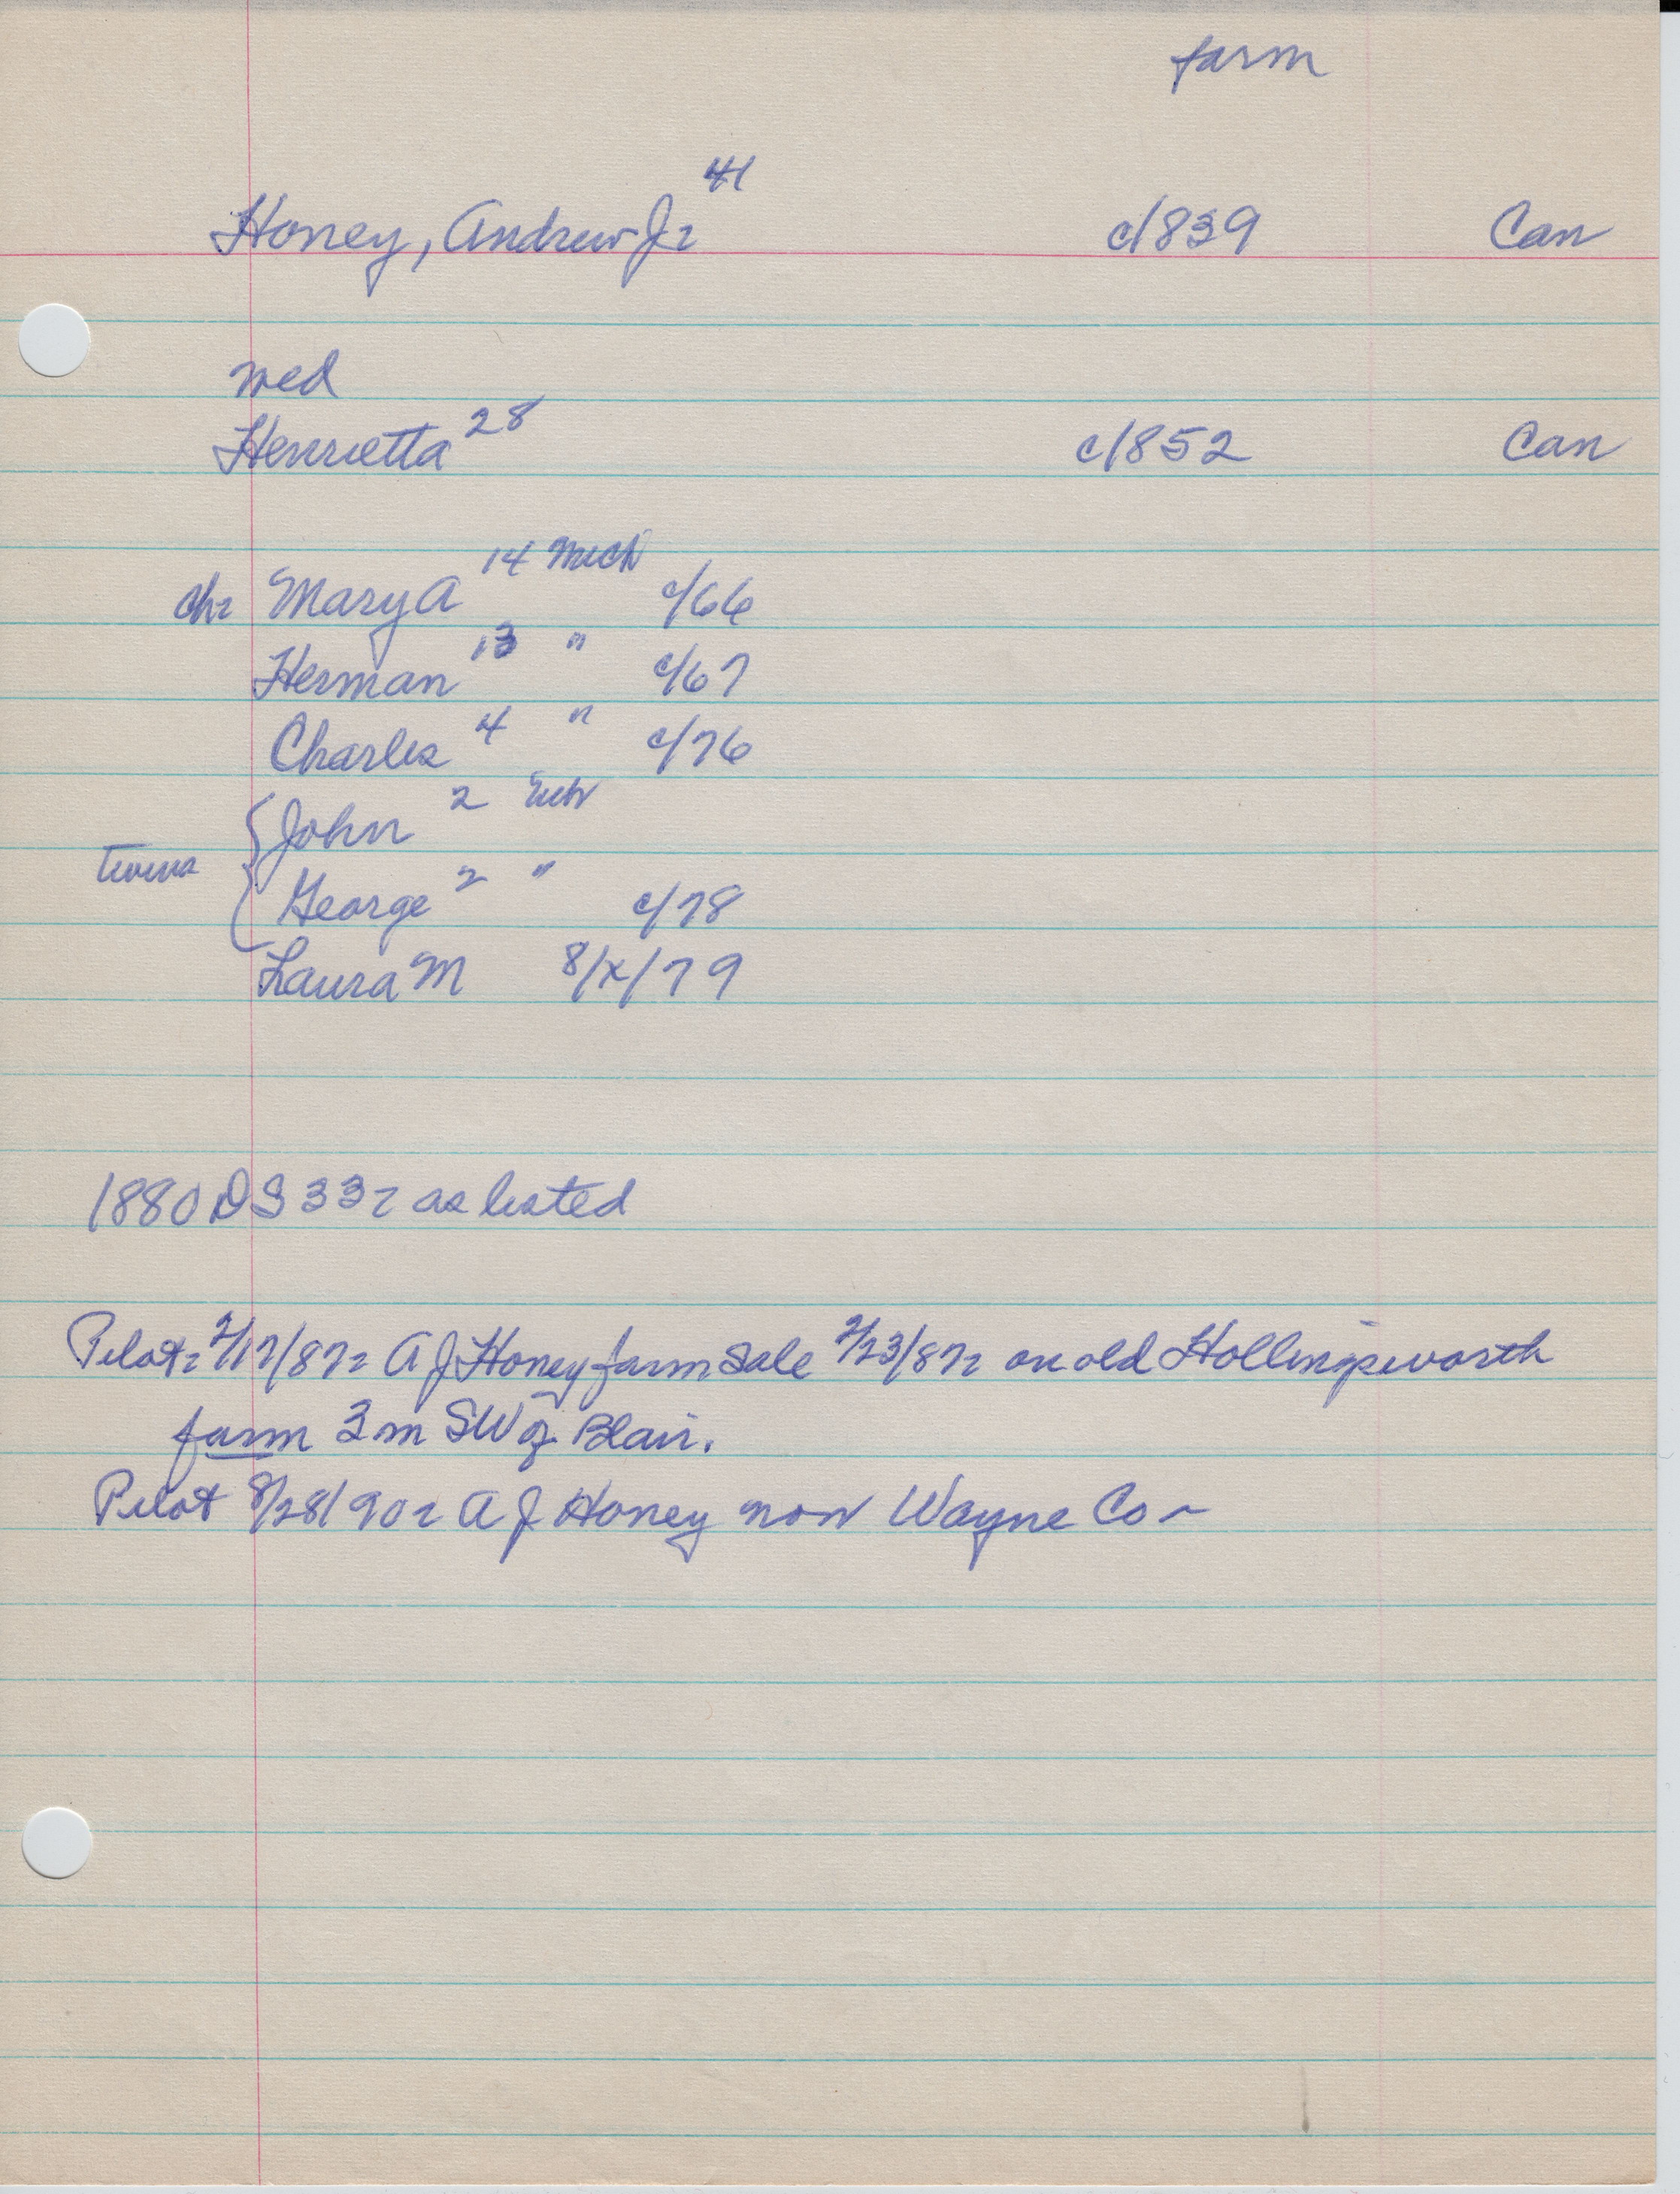 farm
Honey, Andrew J: 41 c1839 Can
med
Henrietta 28 c1852 Can
ch: Mary A 14 Mich c/66
Herman 13 " c/67
Charles 4 " c/76
John 2
twins George 2 " c/78
Laura M 8/x/79
1880 DS 33: as listed
Pilot: 2/17/87: A J Honey farm sale 2/23/87: on old Hollingsworth
farm 3 m SW of Blair.
Pilot 8/28/90: A J Honey now Wayne Co -